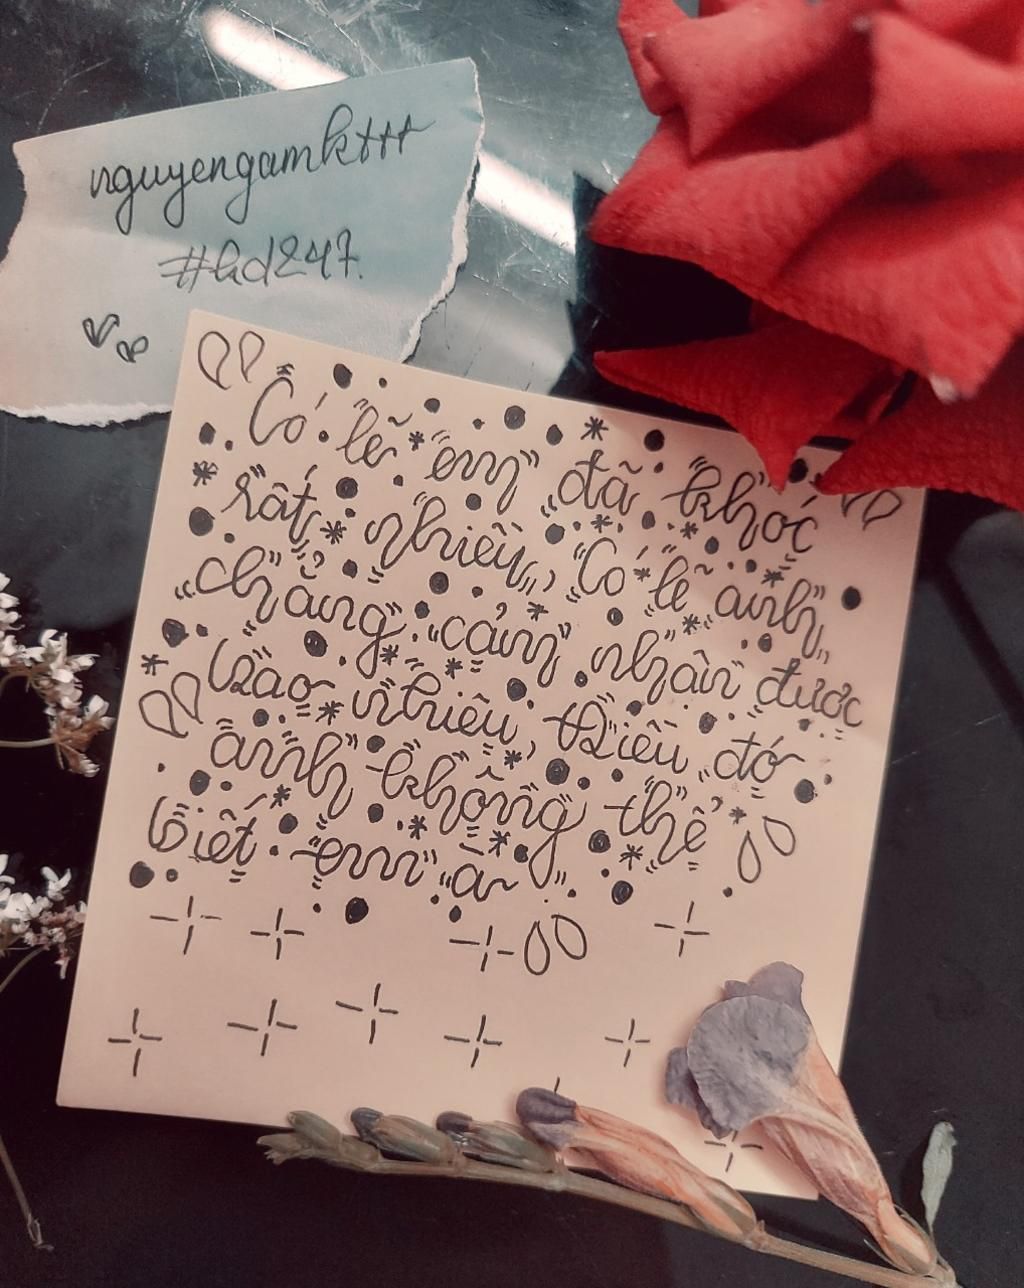 nguyengamkttt
#hd247.
Có lẽ em đã khóc
rất nhiều, Có lẽ anh
chẳng cảm nhận được
bao nhiêu, Điều đó
anh không thể
biết em à